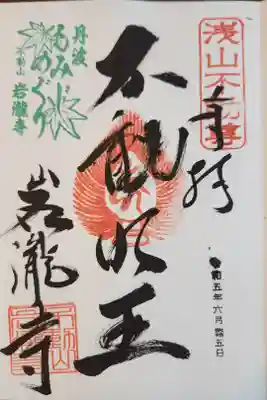 浅山不動尊
奉拝
令和五年六月弐五日
不動明王
丹波
もみじ
めぐり
不動山
岩瀧寺
岩瀧寺